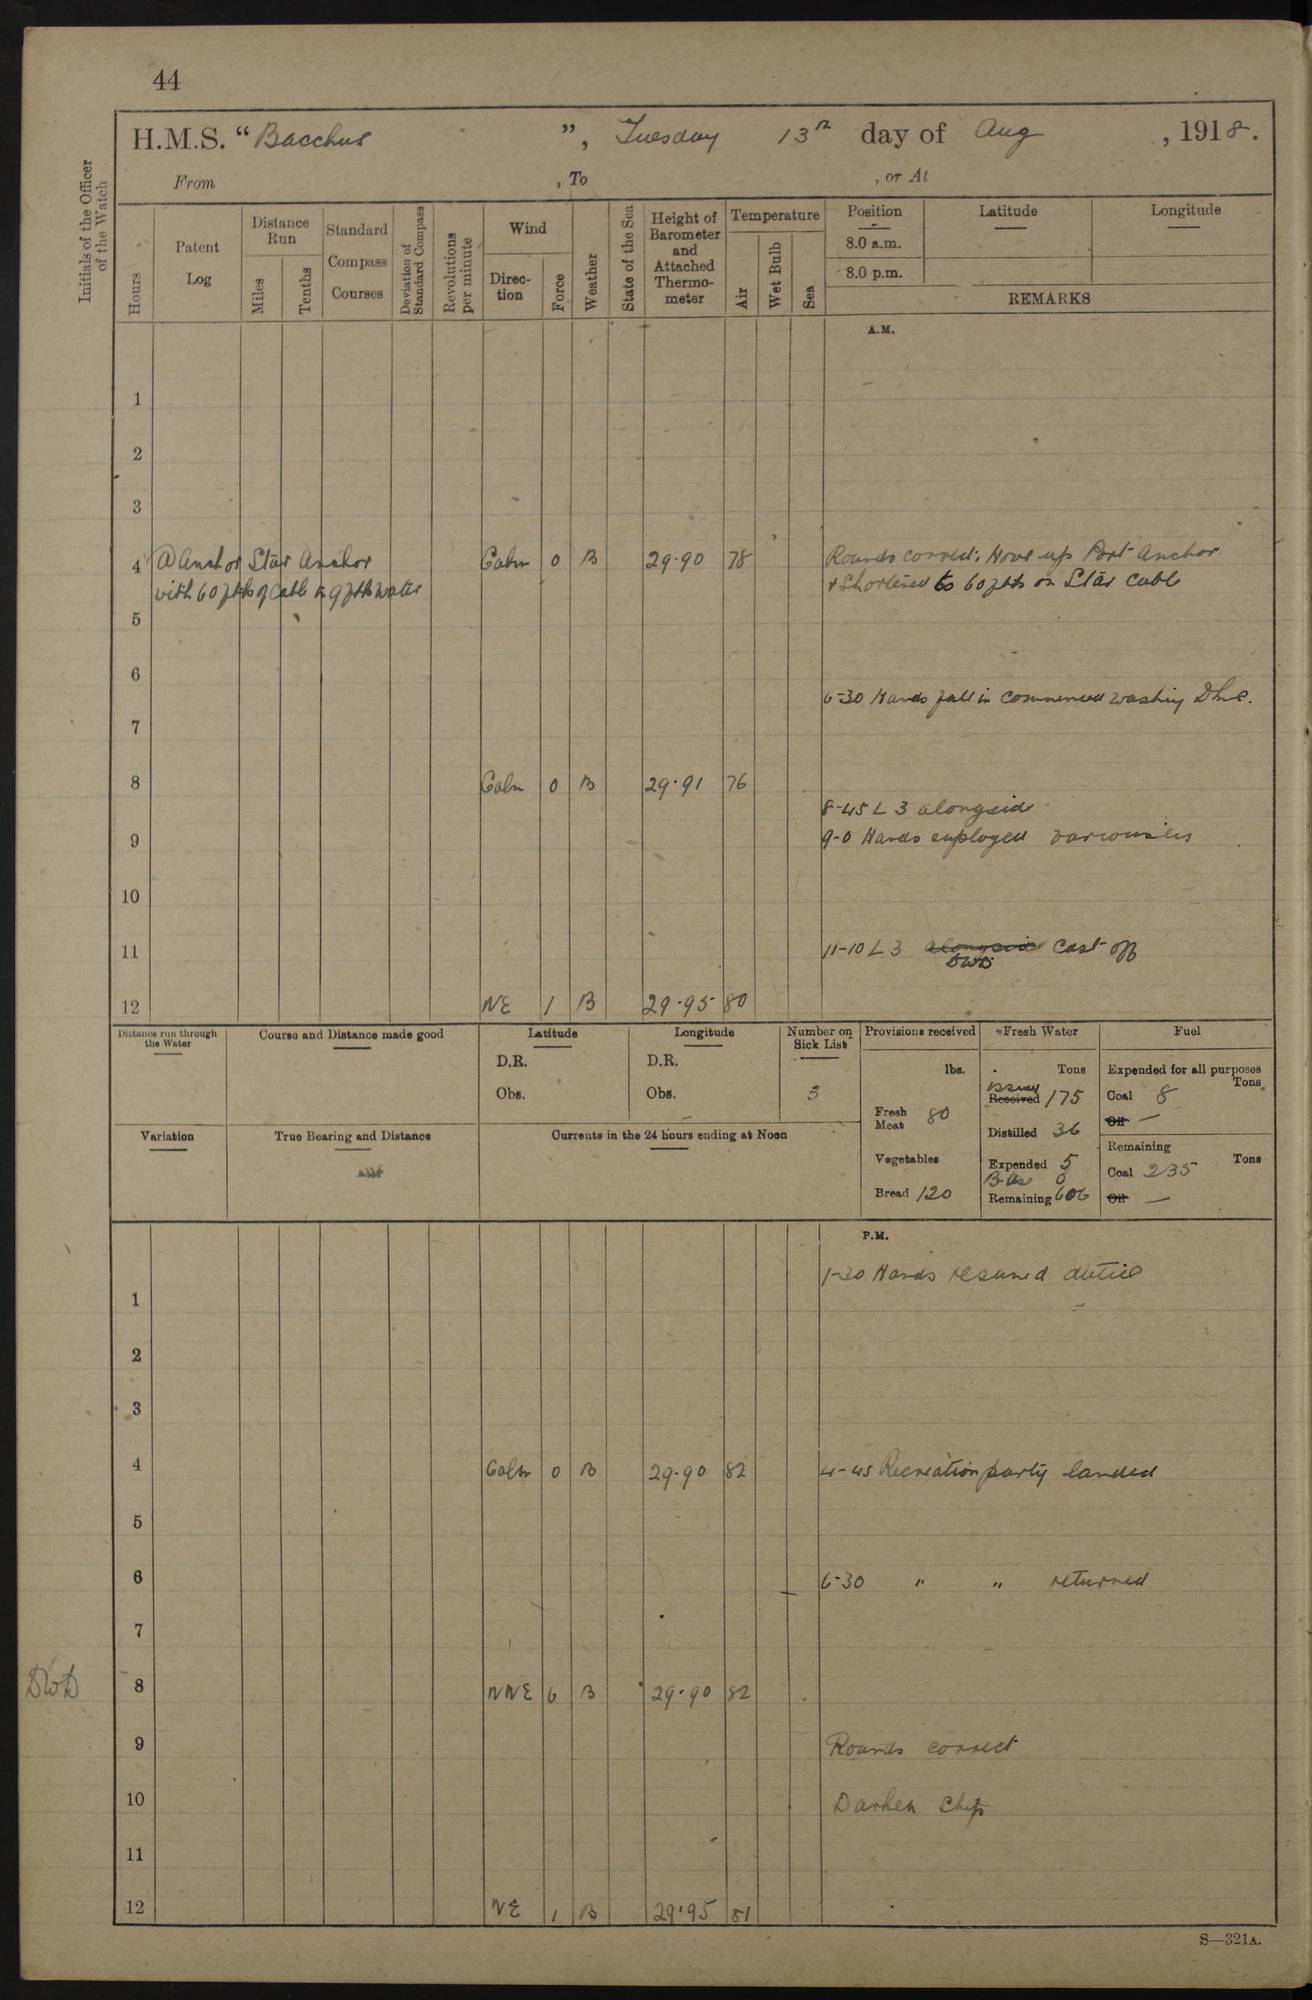 44
H.M.S. “Bacchus ”, Tuesday 13th day of Aug , 1918.
From , To , or At
Initials of the Officer of the Watch
Hours
Patent Log
Distance Run
Miles
Tenths
Standard Compass Courses
Deviation of Standard Compass
Revolutions per minute
Wind
Direc-tion
Force
Weather
State of the Sea
Height of Barometer and Attached Thermo-meter
Temperature
Air
Wet Bulb
Sea
Position Latitude Longitude
8.0 a.m.
8.0 p.m.
REMARKS
A.M.
1
2
3
4 @ Anchor Star Anchor Calm 0 B 29.90 78 Rounds correct. Hove up Port Anchor
with 60 fths of cable in 9 fths water + Shortened to 60 fths on Star Cable
5
6
6-30 Hands fall in commenced washing
7
8 Calm 0 B 29.91 76
8-45 L 3 alongside
9 9-0 Hands employed variously
10
11 11-10 L 3 alongside cast off
DWD
12 NE 1 B 29.95 80
Distance run through the Water
Course and Distance made good
Latitude
D.R.
Obs.
Longitude
D.R.
Obs.
Number on Sick List
3
Provisions received
lbs.
Fresh Meat 80
Vegetables
Bread 120
Fresh Water
Tons
Issued
Received 175
Distilled 36
Expended 5
0
Remaining 606
Fuel
Expended for all purposes
Tons
Coal 8
Oil —
Remaining
Tons
Coal 235
Oil —
Variation
True Bearing and Distance
Currents in the 24 hours ending at Noon
P.M.
1-20 Hands resumed duties
1
2
3
4 Calm 0 B 29.90 82 4-45 Recreation party landed
5
6 6-30 " " returned
7
DWD 8 NNE 6 B 29.90 82
9 Rounds correct
10 Darken Ship
11
12 NE 1 B 29.95 81
S—321A.